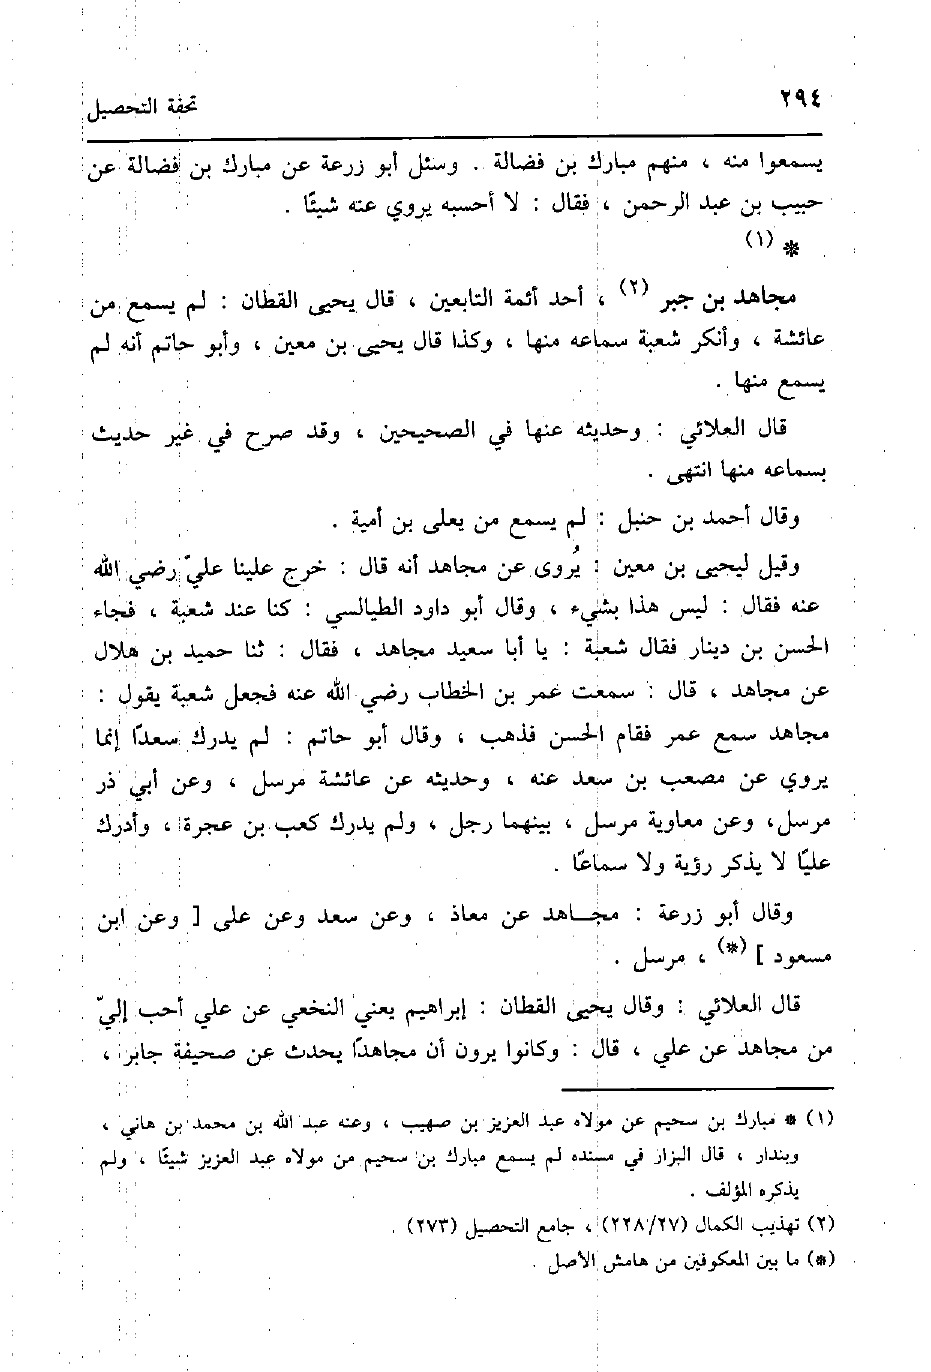 ٢٩٤
تحفة التحصيل
يسمعوا منه ، منهم مبارك بن فضالة . وسئل أبو زرعة عن مبارك بن فضالة عن
حبيب بن عبد الرحمن ، فقال : لا أحسبه يروي عنه شيئًا .
* (١)
مجاهد بن جبر (٢) ، أحد أئمة التابعين ، قال يحيى القطان : لم يسمع من
عائشة ، وأنكر شعبة سماعه منها ، وكذا قال يحيى بن معين ، وأبو حاتم أنه لم
يسمع منها .
قال العلائي : وحديثه عنها في الصحيحين ، وقد صرح في غير حديث
بسماعه منها انتهى .
وقال أحمد بن حنبل : لم يسمع من يعلى بن أمية .
وقيل ليحيى بن معين : يُروى عن مجاهد أنه قال : خرج علينا عليّ رضي الله
عنه فقال : ليس هذا بشيء ، وقال أبو داود الطيالسي : كنا عند شعبة ، فجاء
الحسن بن دينار فقال شعبة : يا أبا سعيد مجاهد ، فقال : ثنا حميد بن هلال
عن مجاهد ، قال : سمعت عمر بن الخطاب رضي الله عنه فجعل شعبة يقول :
مجاهد سمع عمر فقام الحسن فذهب ، وقال أبو حاتم : لم يدرك سعدًا إنما
يروي عن مصعب بن سعد عنه ، وحديثه عن عائشة مرسل ، وعن أبي ذر
مرسل، وعن معاوية مرسل ، بينهما رجل ، ولم يدرك كعب بن عجرة ، وأدرك
عليًا لا يذكر رؤية ولا سماعًا .
وقال أبو زرعة : مجاهد عن معاذ ، وعن سعد وعن على [ وعن ابن
مسعود ] (*) ، مرسل .
قال العلائي : وقال يحيى القطان : إبراهيم يعني النخعي عن علي أحب إليّ
من مجاهد عن علي ، قال : وكانوا يرون أن مجاهدًا يحدث عن صحيفة جابر ،
(١) * مبارك بن سحيم عن مولاه عبد العزيز بن صهيب ، وعنه عبد الله بن محمد بن هاني ،
وبندار ، قال البزار في مسنده لم يسمع مبارك بن سحيم من مولاه عبد العزيز شيئًا ، ولم
يذكره المؤلف .
(٢) تهذيب الكمال (٢٢٨/٢٧) ، جامع التحصيل (٢٧٣) .
(*) ما بين المعكوفين من هامش الأصل .